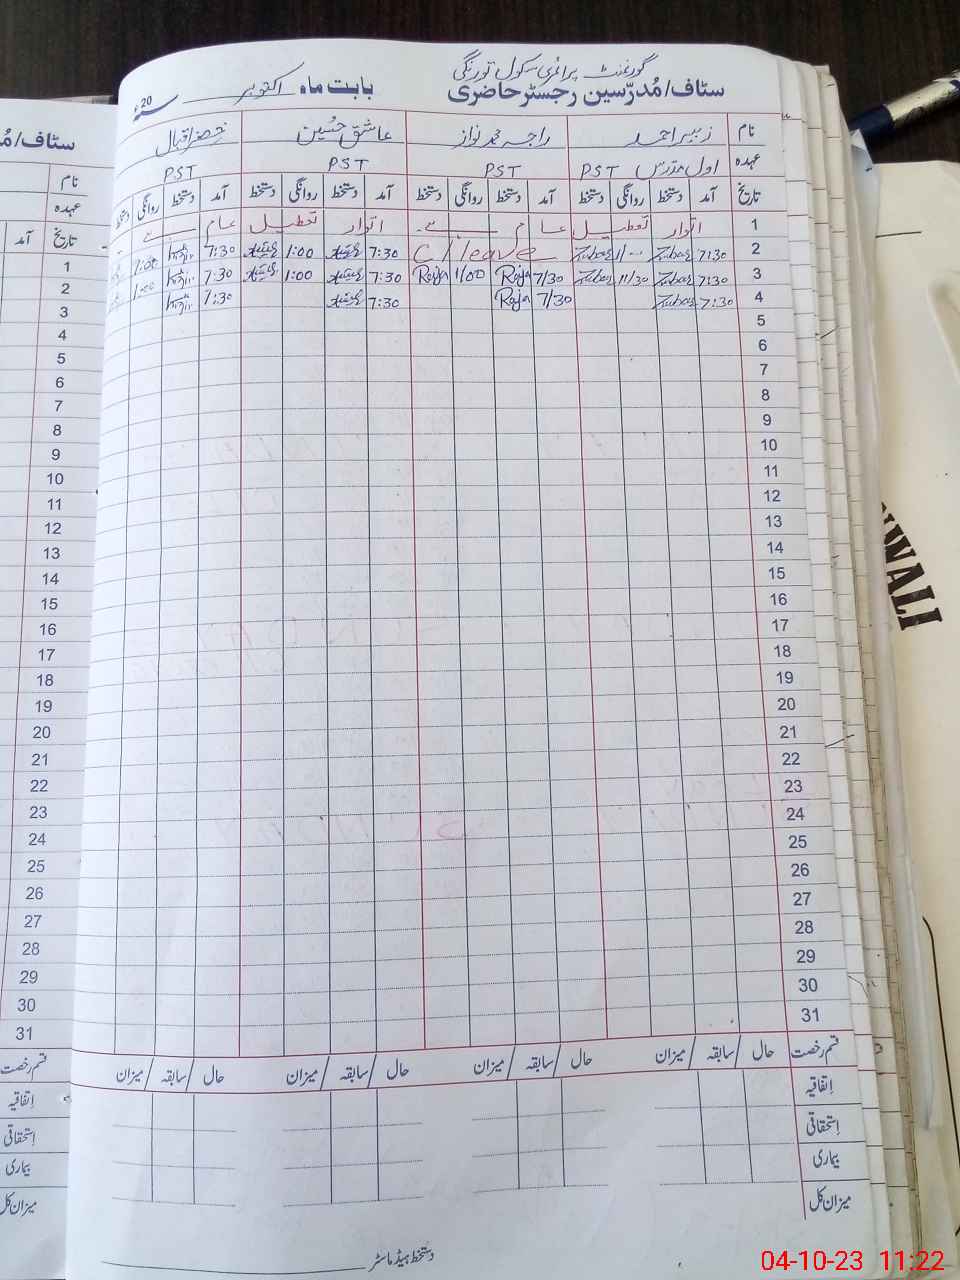 گورنمنٹ پرائمری سکول تورنگی
سٹاف/مُدرّسین رجسٹر حاضری بابت ماہ اکتوبر سنہ 20ء
نام زبیر احمد راجہ محمد نواز عاشق حُسین خضر اقبال
عہدہ اول مدرس PST PST PST PST
تاریخ آمد دستخط روانگی دستخط آمد دستخط روانگی دستخط آمد دستخط روانگی دستخط آمد دستخط روانگی دستخط
1 اتوار تعطیل عام ہے۔ اتوار تعطیل عام ہے
2 7:30 Zubair Zubair C/leave 7:30 1:00 7:30 1:00
3 7:30 Zubair 11/30 Zubair 7/30 Raja 1/00 Raja 7:30 1:00 7:30 1:00
4 7:30 Zubair 7/30 Raja 7:30 7:30
5
6
7
8
9
10
11
12
13
14
15
16
17
18
19
20
21
22
23
24
25
26
27
28
29
30
31
قسم رخصت حال / سابقہ / میزان حال / سابقہ / میزان حال / سابقہ / میزان حال / سابقہ / میزان
اِتفاقیہ
اِستحقاقی
بیماری
میزان کل
دستخط ہیڈ ماسٹر
سٹاف/مُ
نام
عہدہ
تاریخ آمد
1
2
3
4
5
6
7
8
9
10
11
12
13
14
15
16
17
18
19
20
21
22
23
24
25
26
27
28
29
30
31
قسم رخصت
اِتفاقیہ
اِستحقاقی
بیماری
میزان کل
WALI
04-10-23 11:22